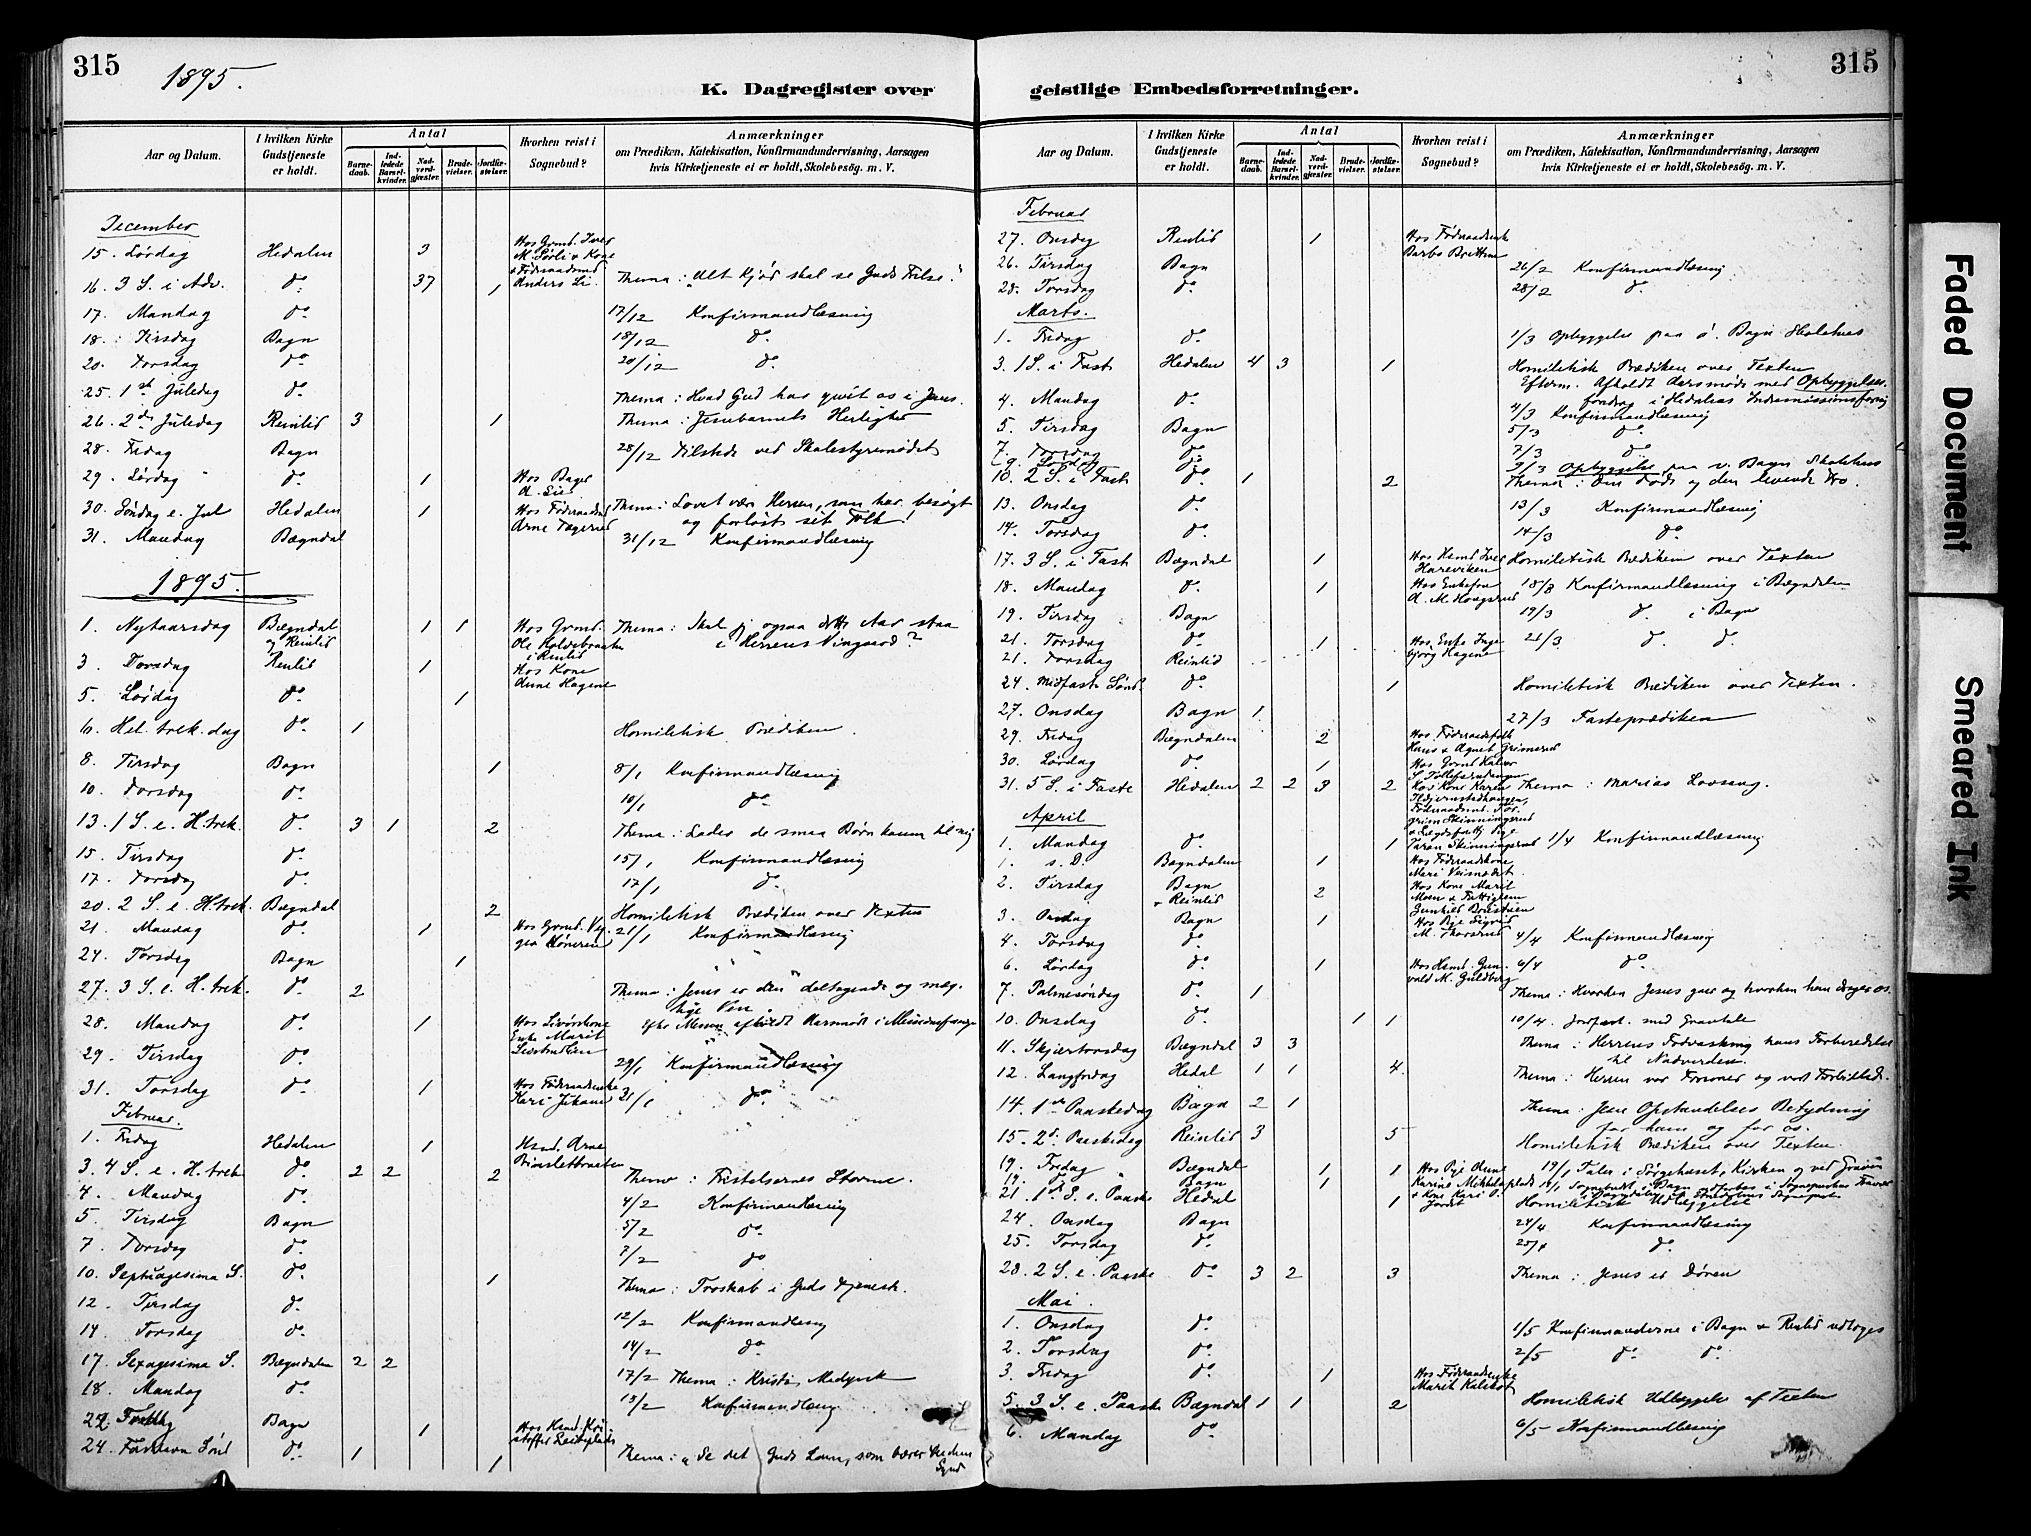 315
1895.
K. Dagregister over
Aar og Datum.
I hvilken Kirke Gudstjeneste er holdt.
Antal
Barne-daab.
Ind-ledede Barsel-kvinder.
Nad-verd-gjæster.
Brude-vielser.
Jordfæ-stelser.
Hvorhen reist i Sognebud?
Anmærkninger
om Prædiken, Katekisation, Konfirmandundervisning, Aarsagen
hvis Kirketjeneste ei er holdt, Skolebesög. m. V.
December
15. Lördag Hedalen 3 Hos Grmd. Iver
M. Sörli & Kone
16. 3 S. i Adv. do. 37 1 Anders Li. Thema: "Alt Kjöd skal se Guds Frelse."
17. Mandag do. 17/12 Konfirmandlæsning
18. Tirsdag Bagn 18/12 do.
20. Torsdag do. 20/12 do.
25. 1ste Juledag do. Thema: Hvad Gud har givet os i Jesus.
26. 2den Juledag Reinlid 3 1 Thema: Jesubarnets Herlighed
28. Fredag Bagn 28/12 Tilstede ved Skolestyremödet
29. Lördag do. 1 Hos Bager
30. Söndag e. Jul Hedalen 1 Hos Föderaadsmd Thema: Lovet vær Herren, som har besögt
og forlöst sit Folk!
31. Mandag Bægndal 31/12 Konfirmandlæsning
1895.
1. Nytaarsdag Bægndal 1 1 Hos Grmd. Thema: Skal jeg ogsaa dette Aar staa
og Reinlid Ole i Herrens Vingaard?
i Reinlid
3. Torsdag Reinlid 1 Hos Kone
Anne Hagene
5. Lördag do. 1
6. Hel. trek. dag do. 1 Homiletisk Prædiken.
8. Tirsdag Bagn 1 8/1 Konfirmandlæsning
10. Torsdag do. 10/1 do.
13. 1 S. e. H. trek. do. 3 1 2 Thema: Lader de smaa Börn komme til mig
15. Tirsdag do. 15/1 Konfirmandlæsning
17. Torsdag do. 17/1 do.
20. 2 S. e. H. trek. Bægndal 2 Homiletisk Prædiken over Texten
21. Mandag do. 1 Hos Grmd. 21/1 Konfirmandlæsning
24. Torsdag Bagn 1
27. 3 S. e. H. trek. do. 2 Thema: Jesus er den deltagende og mæg-
tige Ven.
28. Mandag do. 1 Enke Marit
29. Tirsdag do. 29/1 Konfirmandlæsning
31. Torsdag do. 1 Hos Föderaadsenke 31/1 do.
Februar.
1. Fredag Hedalen 1 Husmd. Arne
3. 4 S. e. H. trek. do. 2 2 2 Thema: Fristelsernes Storme.
4. Mandag do. 4/2 Konfirmandlæsning
5. Tirsdag Bagn 5/2 do.
7. Torsdag do. 7/2 do.
10. Septuagesima S. do. 1 Thema: Troskab i Guds Tjeneste.
12. Tirsdag do. 12/2 Konfirmandlæsning
14. Torsdag do. 14/2 do.
17. Sexagesima S. Bægndalen 2 2 17/2 Thema: Kristi Medynk
18. Mandag do. 18/2 Konfirmandlæsning
Bagn 1
24. Fastelavn Sönd do. 1 1 Thema: "Se det Guds Lam, som bærer Verdens
Synd

315
geistlige Embedsforretninger.
Aar og Datum.
I hvilken Kirke Gudstjeneste er holdt.
Antal
Barne-daab.
Ind-ledede Barsel-kvinder.
Nad-verd-gjæster.
Brude-vielser.
Jordfæ-stelser.
Hvorhen reist i Sognebud?
Anmærkninger
om Prædiken, Katekisation, Konfirmandundervisning, Aarsagen
hvis Kirketjeneste ei er holdt, Skolebesög. m. V.
Februar
27. Onsdag Reinlid 1 Hos Föderaadsenke
26. Tirsdag Bagn 26/2 Konfirmandlæsning
28. Torsdag do. 28/2 do.
Marts.
1. Fredag do. 1/3 Opbyggelse paa ö. Bagn Skolehus
3. 1 S. i Fast Hedalen 4 3 1 Homiletisk Prædiken over Texten
Efterm. Afholdt Aarsmöde med Opbyggelses-
foredrag i Hedalens Indremissionsforening
4. Mandag do. 4/3 Konfirmandlæsning
5. Tirsdag Bagn 5/3 do.
7. Torsdag do. 7/3 do.
9. Lördag do. 9/3 Opbyggelse paa v. Bagn Skolehus
10. 2 S. i Fast do. 1 2 Thema: Om död og den levende Tro.
13. Onsdag do. 13/3 Konfirmandlæsning
14. Torsdag do. 14/3 do.
17. 3 S. i Fast Bægndal 1 Hos Husmd Iver Homiletisk Prædiken over Texten
18. Mandag do. 1 Hos Enkefru 18/3 Konfirmandlæsning i Bægndalen
19. Tirsdag Bagn 19/3 do. i Bagn
21. Torsdag do. 1 Hos Enke Inge- 21/3 do. do.
björg Hagene
21. Torsdag Reinlid
24. Midfaste Sönd. do. 1 Homiletisk Prædiken over Texten.
27. Onsdag Bagn 1 27/3 Fasteprædiken
29. Fredag Bægndalen 2 Hos Föderaadsfolk
30. Lördag do. 1 Hos Grmd Halvor
31. 5 S. i Faste Hedalen 2 2 3 2 Hos Kone Karen Thema: Marias Lovsang.
April
1. Mandag do. 1 1/4 Konfirmandlæsning
1. s. D. Bægndalen 1 Hos Föderaadskone
2. Tirsdag Bagn 2 Hos Kone Marit
& Reinlid
3. Onsdag Bagn 1 Hos Pige Sigrid
4. Torsdag do. 4/4 Konfirmandlæsning
6. Lördag do. 1 Hos Husmd. Gun- 6/4 do.
vald M. Guldberg
7. Palmesöndag do. 1 Thema: Hvorhen Jesus gaar og hvorhen han drager os.
10. Onsdag do. 1 1 10/4. Jordfæst. med Gravtale
11. Skjærtorsdag Bægndal 3 3 Thema: Herrens Fodvaskning hans Forberedelse
til Nadverden.
12. Langfredag Hedal 1 1 4 Thema: Herren vor Forsoner og vort Forbillede.
14. 1ste Paaskedag Bagn 2 1 Thema: Jesu Opstandelses Betydning
for ham og for os.
15. 2d. Paaskedag Reinlid 3 5 Homiletisk Prædiken over Texten.
19. Fredag Bægndal 1 1 Hos Pige Anne 19/4 Taler i Sörgehuset, Kirken og ved Graven
19. Bagn 1
21. 1ste S. e. Paaske Hedal 1 Homiletisk Udlæggelse
24. Onsdag Bagn 24/4 Konfirmandlæsning
25. Torsdag do. 25/4 do.
28. 2 S. e. Paaske do. 3 2 3 Thema: Jesus er Dören
Mai.
1. Onsdag do. 1/5 Konfirmanderne i Bagn & Reinlid udtoges
2. Torsdag do. 2/5 do. do.
3. Fredag do. 1 Hos Föderaadsenke
5. 3 S. e. Paaske Bægndal 1 1 2 Homiletisk Udlæggelse af Texten
6. Mandag do. 6/5 Konfirmandlæsning
Faded Document
Smeared Ink